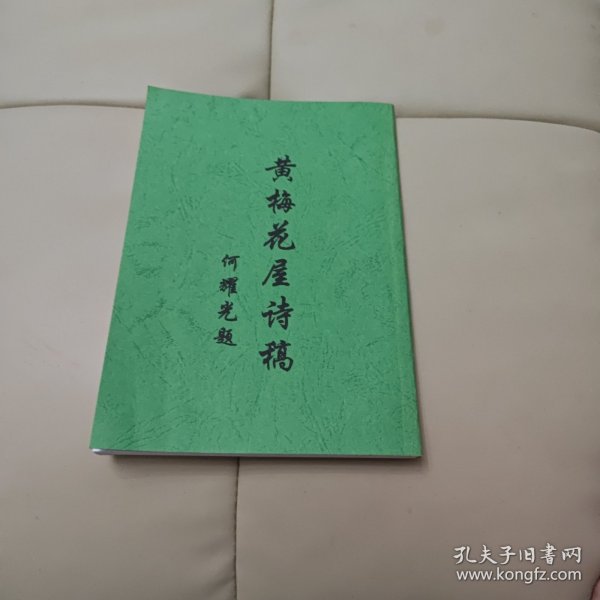 黄梅花屋诗稿
何耀光题
孔夫子旧书网
www.kongfz.com